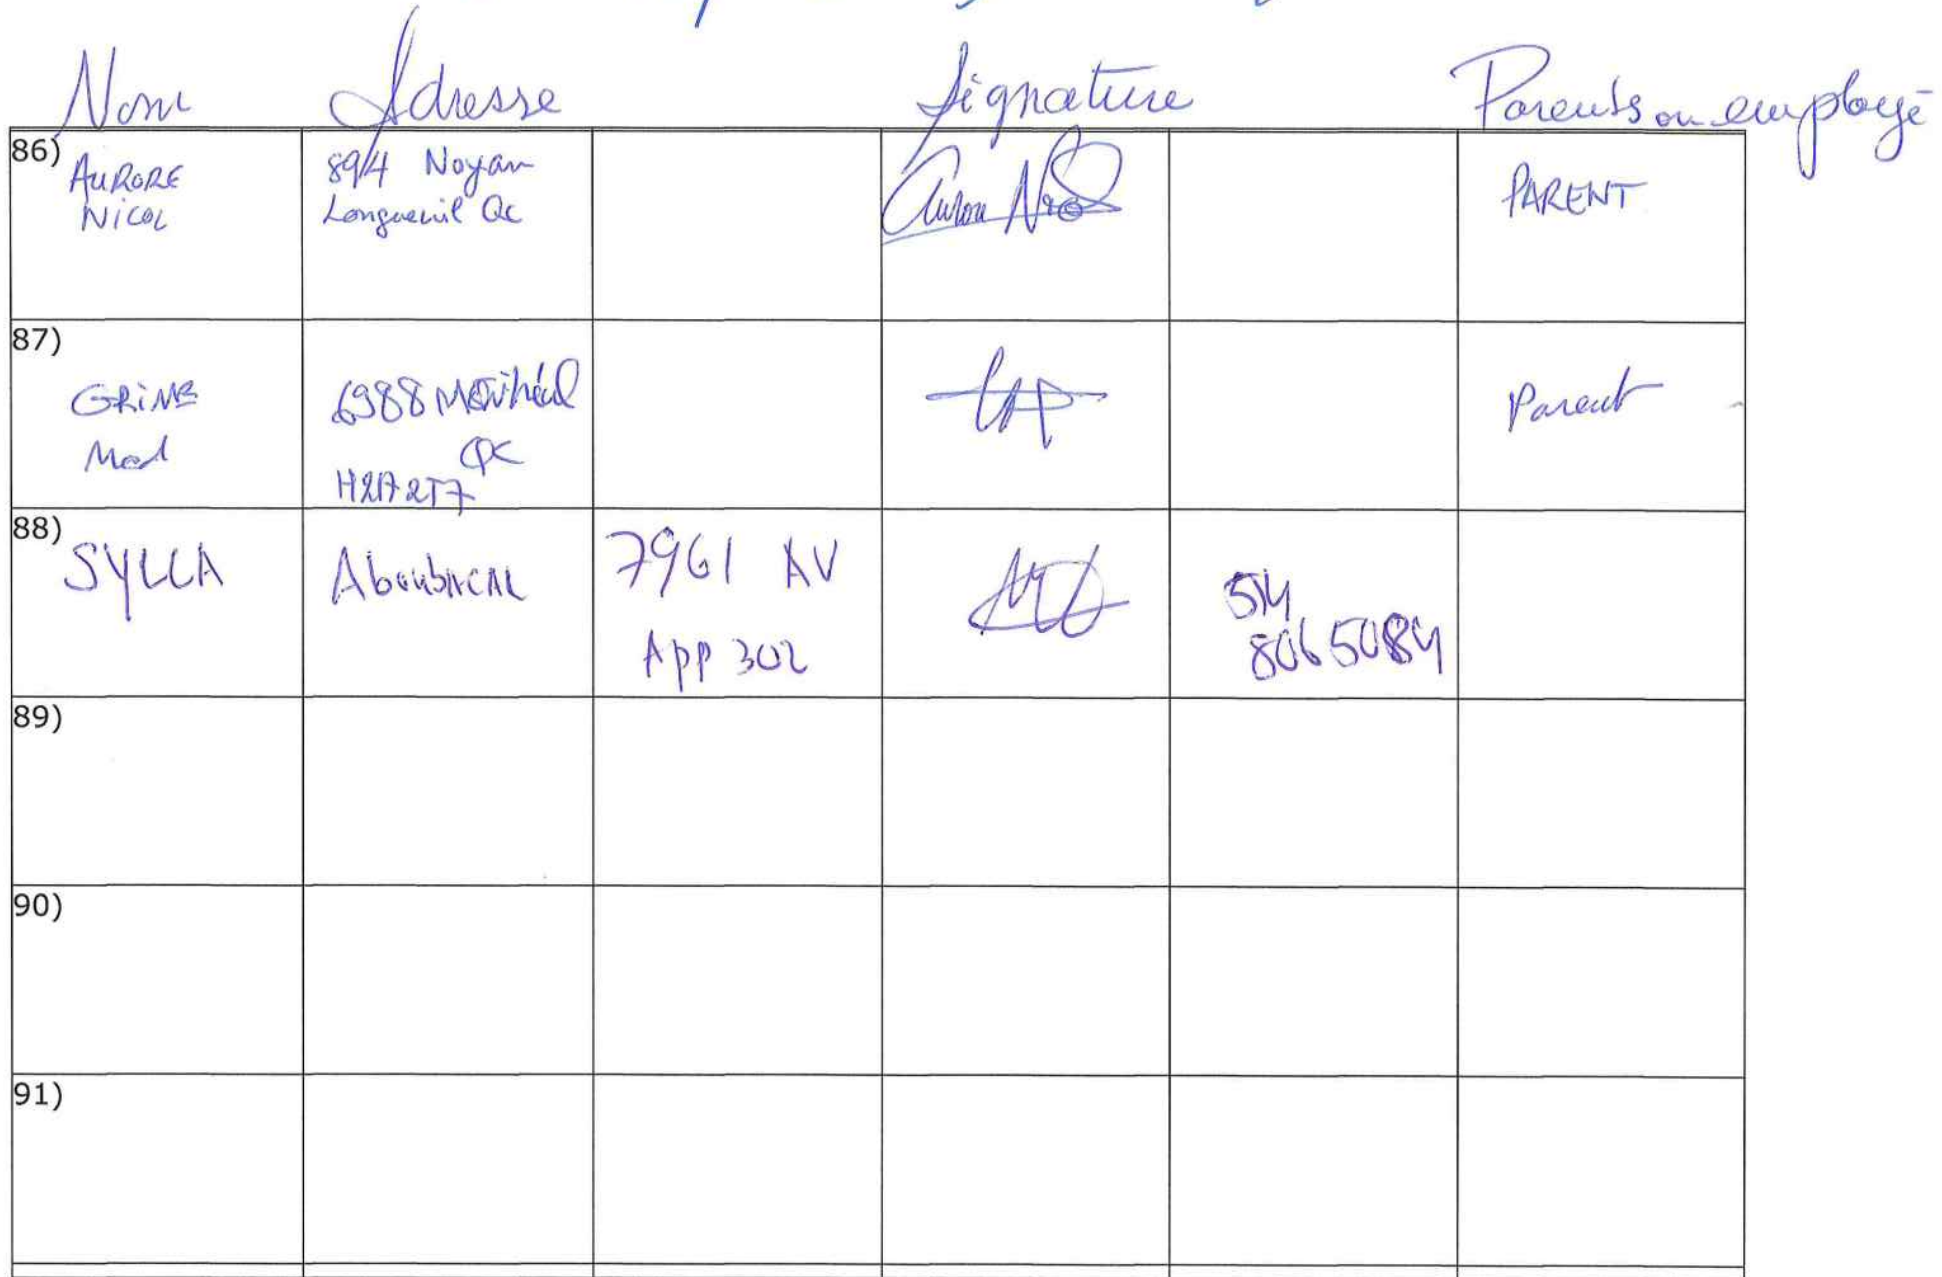 Nom Adresse Signature Parents ou employé
86)
AURORE
NICOL
8914 Noyan
Longueuil Qc
PARENT
87)
GRINE
Med
6988
QC
H2A2T7
Parent
88)
SYLLA
Aboubacar
7961 AV
App 302
514
8065084
89)
90)
91)